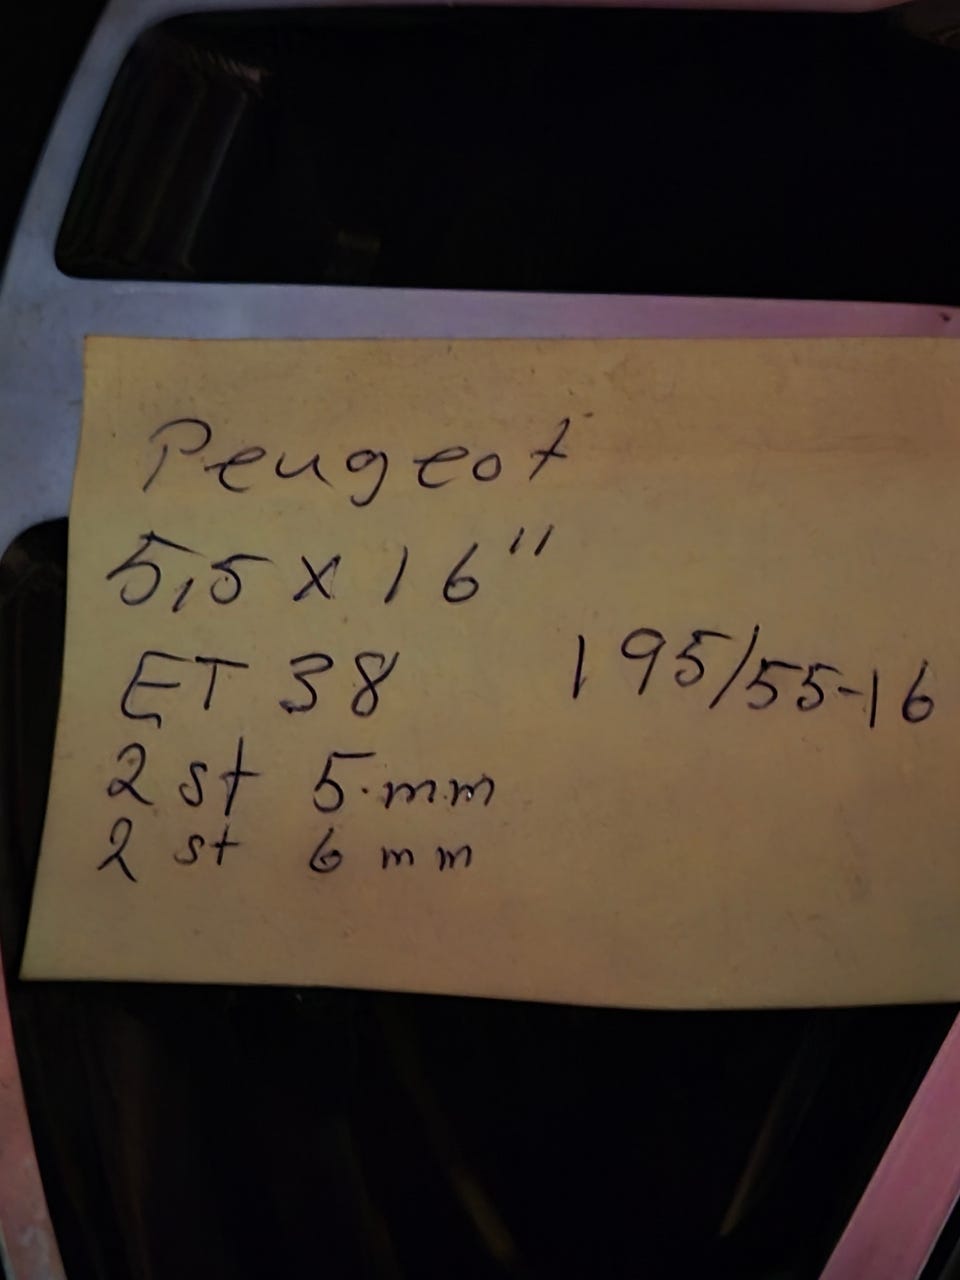 Peugeot
5,5 x 16"
ET 38
195/55-16
2 st 5 mm
2 st 6 mm